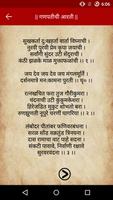 6:06
|| गणपतीची आरती ||
सुखकर्ता दुःखहर्ता वार्ता विघ्नाची ।
नुरवी पुरवी प्रेम कृपा जयाची ।
सर्वांगी सुंदर उटी शेंदुराची ।
कंठी झळके माळ मुक्ताफळांची ।। १ ।।
जय देव जय देव जय मंगलमूर्ति ।
दर्शनमात्रे मनःकामना पुरती ।। धृ ।।
रत्नखचित फरा तुज गौरीकुमरा ।
चंदनाची उटी कुंकुमकेशरा ।
हिरेजडित मुकुट शोभतो बरा ।
रुणझुणती नूपुरे चरणी घागरिया ।। २ ।।
लंबोदर पीतांबर फणिवरबंधना ।
सरळ सोंड वक्रतुंड त्रिनयना ।
दास रामाचा वाट पाहे सदना ।
संकटी पावावे, निर्वाणी रक्षावे
सुरवरवंदना ।। ३ ।।